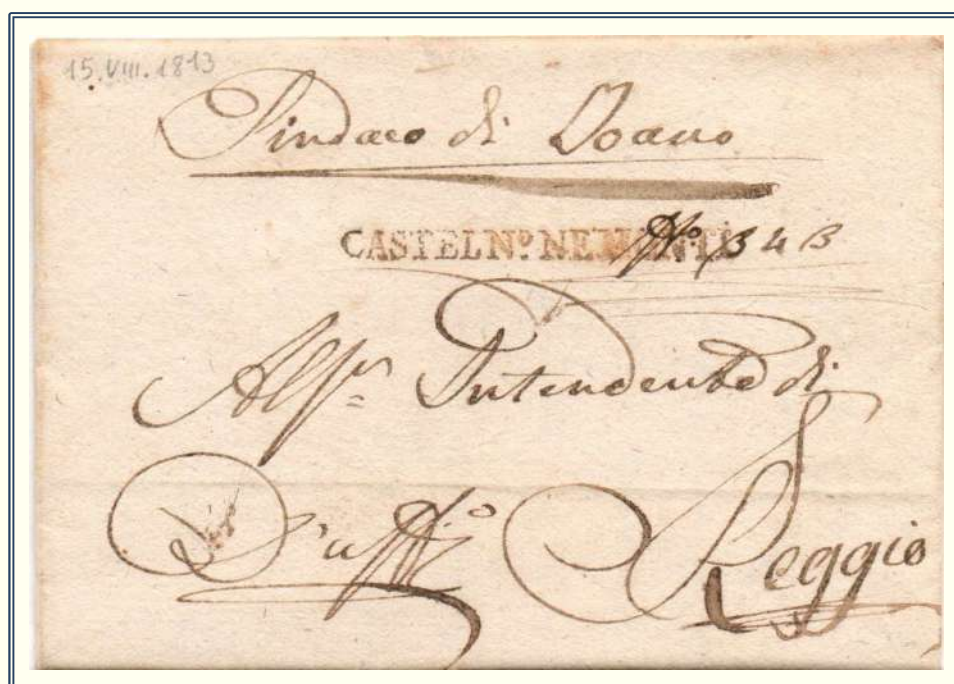 15.VIII.1813
Sindaco di Toano
CASTELNº. NE MONTI Nº. 343
Al Sigr. Intendente di
D'uffº Reggio